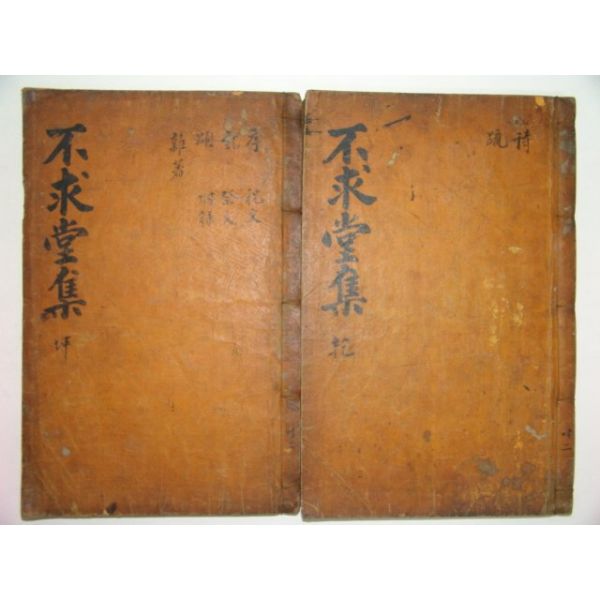 詩
疏
不求堂集
乾
序 祝文
記 祭文
附錄
雜著
不求堂集
坤